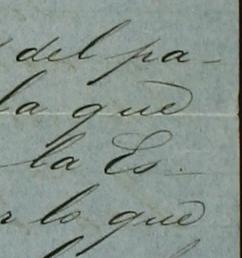 del pa-
la que
la Es-
lo que